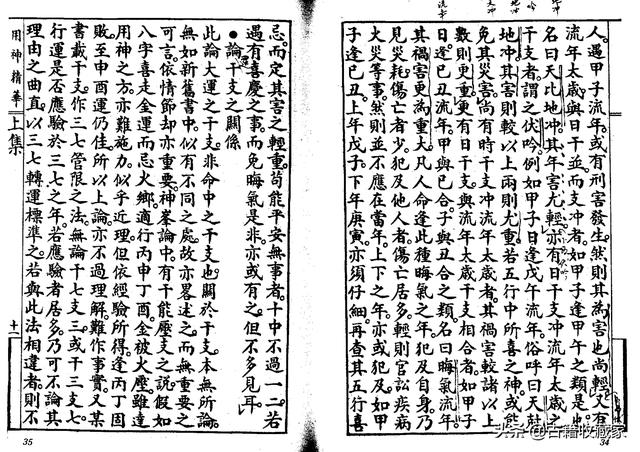 人。遇甲子流年。或有刑害發生。然則其為害也尚輕。又有
流年太歲與日干並而支冲者。如甲子逢甲午之類是也。
名曰天比地冲。其年害尤輕。亦有日干支冲流年太歲之
干支者。謂之伏吟。例如甲子日逢戊午流年。俗呼曰天尅
地冲。其害則較以上兩則尤重。若五行中所喜之神。或能
免其災害。尚有時干支冲流年太歲者。其禍害較諸以上
數則更重。更有日干支。與流年太歲干支相合者。如甲子
日逢己丑流年。甲與己合。子與丑合之類。名曰晦氣流年。
其禍害更為重大。凡人命逢此種晦氣之年。犯及自身。乃
見災耗傷亡者少。犯及他人者。傷亡居多。輕則官訟疾病
火災等事。然則並不應在當年。上下之年。亦或犯及。如甲
子逢己丑。上年戊子。下年庚寅。亦須仔細再查其五行喜
34
忌。而定其害之輕重。苟能平安無事者。十中不過一二。若
遇有喜慶之事。而免晦氣是非。亦或有之。但不多見耳。
●論干支之關係
此論大運之干支。非命中之干支也。關於干支。本無所論。
無如新舊書中。似有不同之處。故亦畧述之。而無重要之
可言。依情節却亦重要。神峯論中。有干能壓支之說。假如
八字喜走金運。而忌火鄉。適行丙申丁酉。金被火壓。雖遠
用神之方。亦難施力。似乎近理。但依經驗所得。逢丙丁固
敗。至申酉運仍佳。所以上論亦不過理解。難作事實。又某
書載干支。作三七管限之法。無論干七支三。或干三支七。
行運是否應驗於三七之年。若應驗者居多。乃可不論其
理由之曲直。以三七轉運標準之。若與此法相違者。則不
用神精華 上集
十一
35
头条 @古籍收藏家